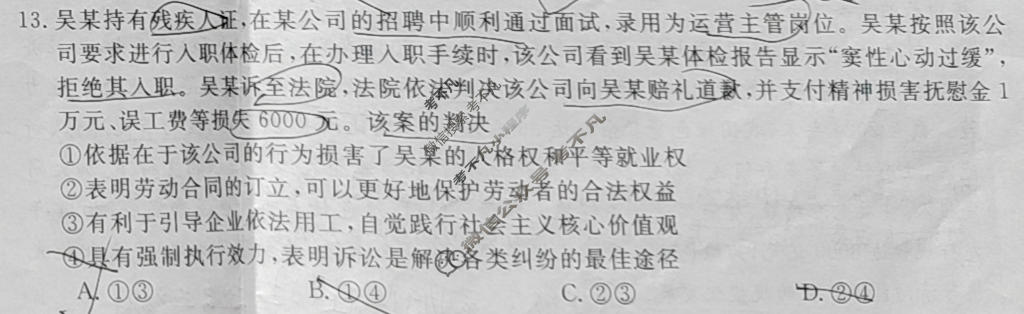 13. 吴某持有残疾人证,在某公司的招聘中顺利通过面试,录用为运营主管岗位。吴某按照该公
司要求进行入职体检后,在办理入职手续时,该公司看到吴某体检报告显示“窦性心动过缓”,
拒绝其入职。吴某诉至法院,法院依法判决该公司向吴某赔礼道歉,并支付精神损害抚慰金1
万元、误工费等损失6000元。该案的判决
①依据在于该公司的行为损害了吴某的人格权和平等就业权
②表明劳动合同的订立,可以更好地保护劳动者的合法权益
③有利于引导企业依法用工,自觉践行社会主义核心价值观
④具有强制执行效力,表明诉讼是解决各类纠纷的最佳途径
A. ①③ B. ①④ C. ②③ D. ②④
微信公众号 考不凡
考不凡小程序